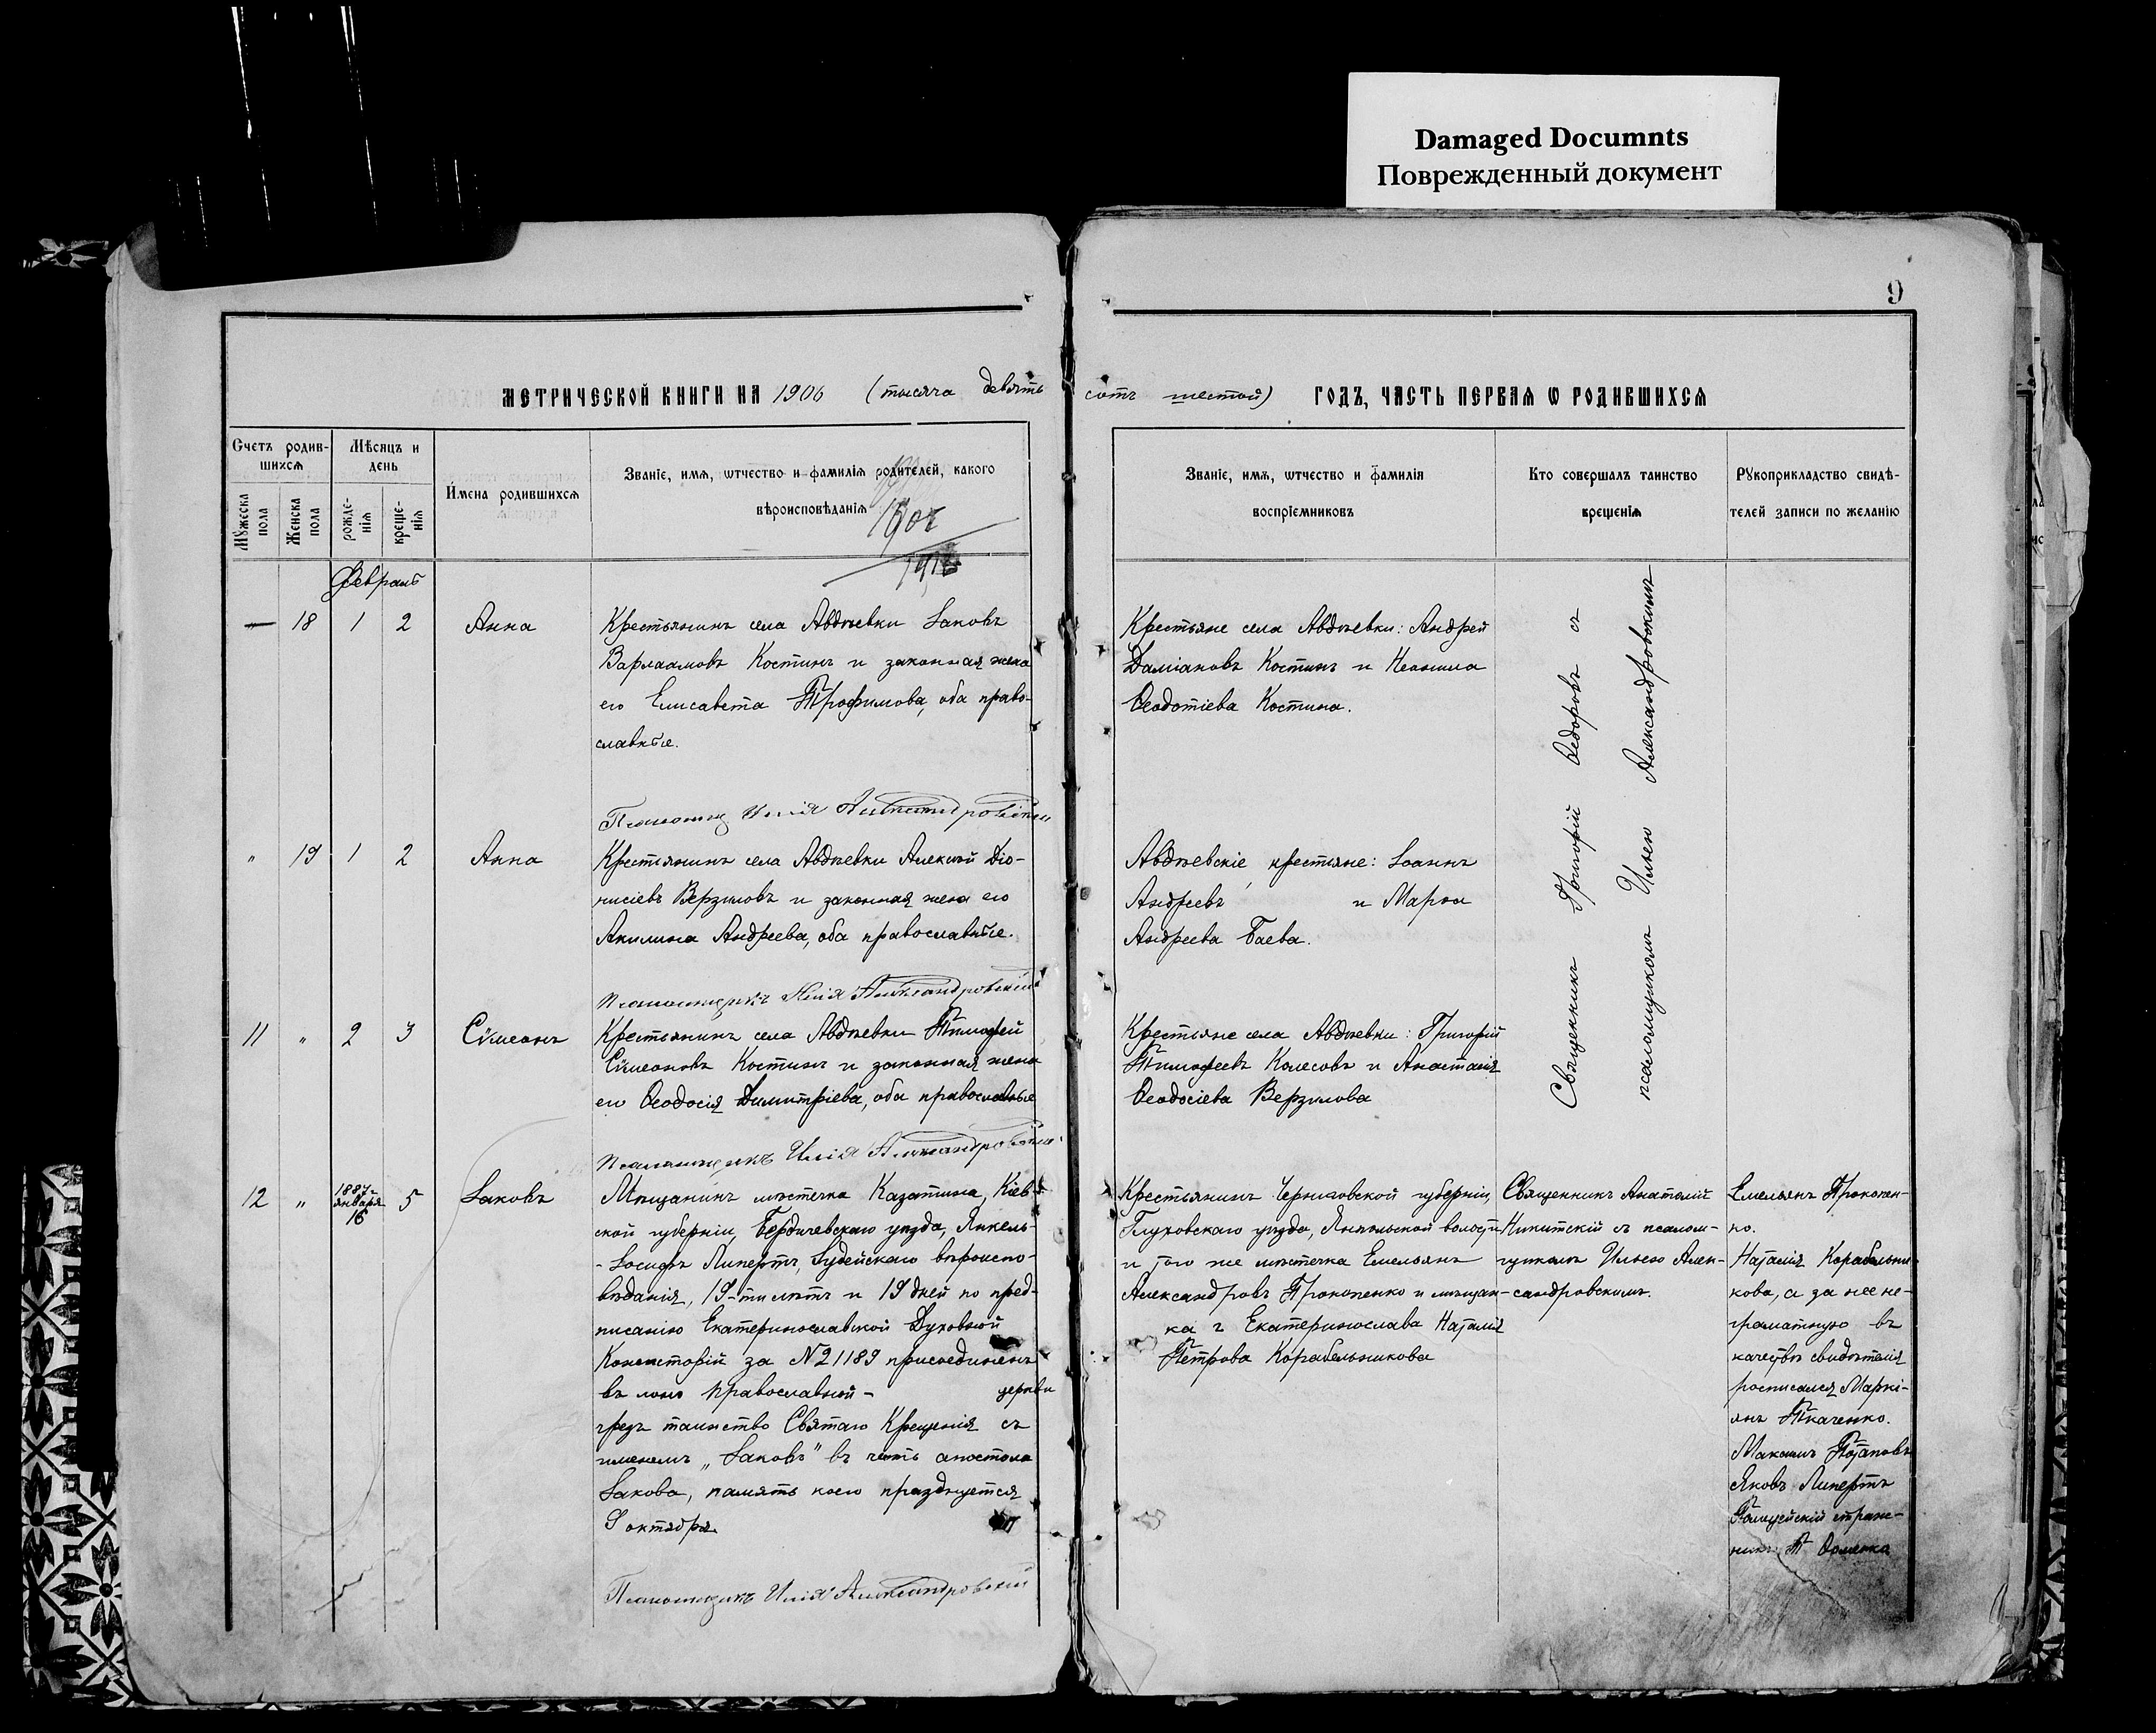 Damaged Documnts
Поврежденный документ
9
МЕТРИЧЕСКОЙ КНИГИ НА 1906 (тысяча девять сотъ шестой) ГОДЪ, ЧАСТЬ ПЕРВАЯ Ѡ РОДИВШИХСЯ
Счетъ родив-
шихся
Мѣсяцъ и
день
Мꙋжеска
пола
Женска
пола
рожде-
нія
креще-
нія
Имена родившихся
Званіе, имя, ѿчество и фамилія родителей, какого
вѣроисповѣданія
Званіе, имя, ѿчество и фамилія
воспріемниковъ
Кто совершалъ таинство
крещенія
Рꙋкоприкладство свидѣ-
телей записи по желанію
Февраль
— 18 1 2 Анна
Крестьянинъ села Авдѣевки Іаковъ
Варлаамовъ Костинъ и законная жена
его Елисавета Трофимова, оба право-
славные.
Крестьяне села Авдѣевки: Андрей
Даміановъ Костинъ и Неонила
Ѳеодотіева Костина.
Священникъ Григорій Ѳедоровъ съ
псаломщикомъ Ильею Александровскимъ
Псаломщ Илія Александровскій
" 19 1 2 Анна
Крестьянинъ села Авдѣевки Алексѣй Діо-
нисіевъ Верзиловъ и законная жена его
Акилина Андреева, оба православные.
Авдѣевскіе крестьяне: Іоаннъ
Андреевъ и Марѳа
Андреева Баева.
Псаломщикъ Илія Александровскій
11 " 2 3 Сѵмеонъ
Крестьянинъ села Авдѣевки Тимофей
Сѵмеоновъ Костинъ и законная жена
его Ѳеодосія Димитріева, оба православные
Крестьяне села Авдѣевки: Григорій
Тимофеевъ Колесовъ и Анастасія
Ѳеодосіева Верзилова
Псаломщикъ Илія Александровскій
12 " 1887 г. января 16 5 Іаковъ
Мѣщанинъ мѣстечка Казатина, Кіев-
ской губерніи, Бердичевскаго уѣзда, Янкель-
-Іосифъ Липертъ, Іудейскаго вѣроиспо-
вѣданія, 19-ти лѣтъ и 19 дней по пред-
писанію Екатеринославской Духовной
Консисторіи за № 21189 присоединенъ
въ лоно православной - церкви
чрезъ таинство Святаго Крещенія съ
именемъ „Іаковъ" въ честь апостола
Іакова, память коего празднуется
9 октября.
Псаломщикъ Илія Александровскій
Крестьянинъ Черниговской губерніи,
Глуховскаго уѣзда, Ямпольской волости
и того же мѣстечка Емельянъ
Александровъ Прокопенко и мѣщан-
ка г Екатеринослава Наталія
Петрова Корабельникова
Священникъ Анатолій
Никитскій съ псалом-
щикомъ Ильею Алек-
сандровскимъ.
Емельянъ Прокопен-
ко.
Наталія Корабельни-
кова, а за нее не-
грамотную въ
качествѣ свидѣтеля
росписался Маркі-
янъ Ткаченко.
Максимъ Потаповъ
Яковъ Липертъ
Полицейскій страж-
никъ